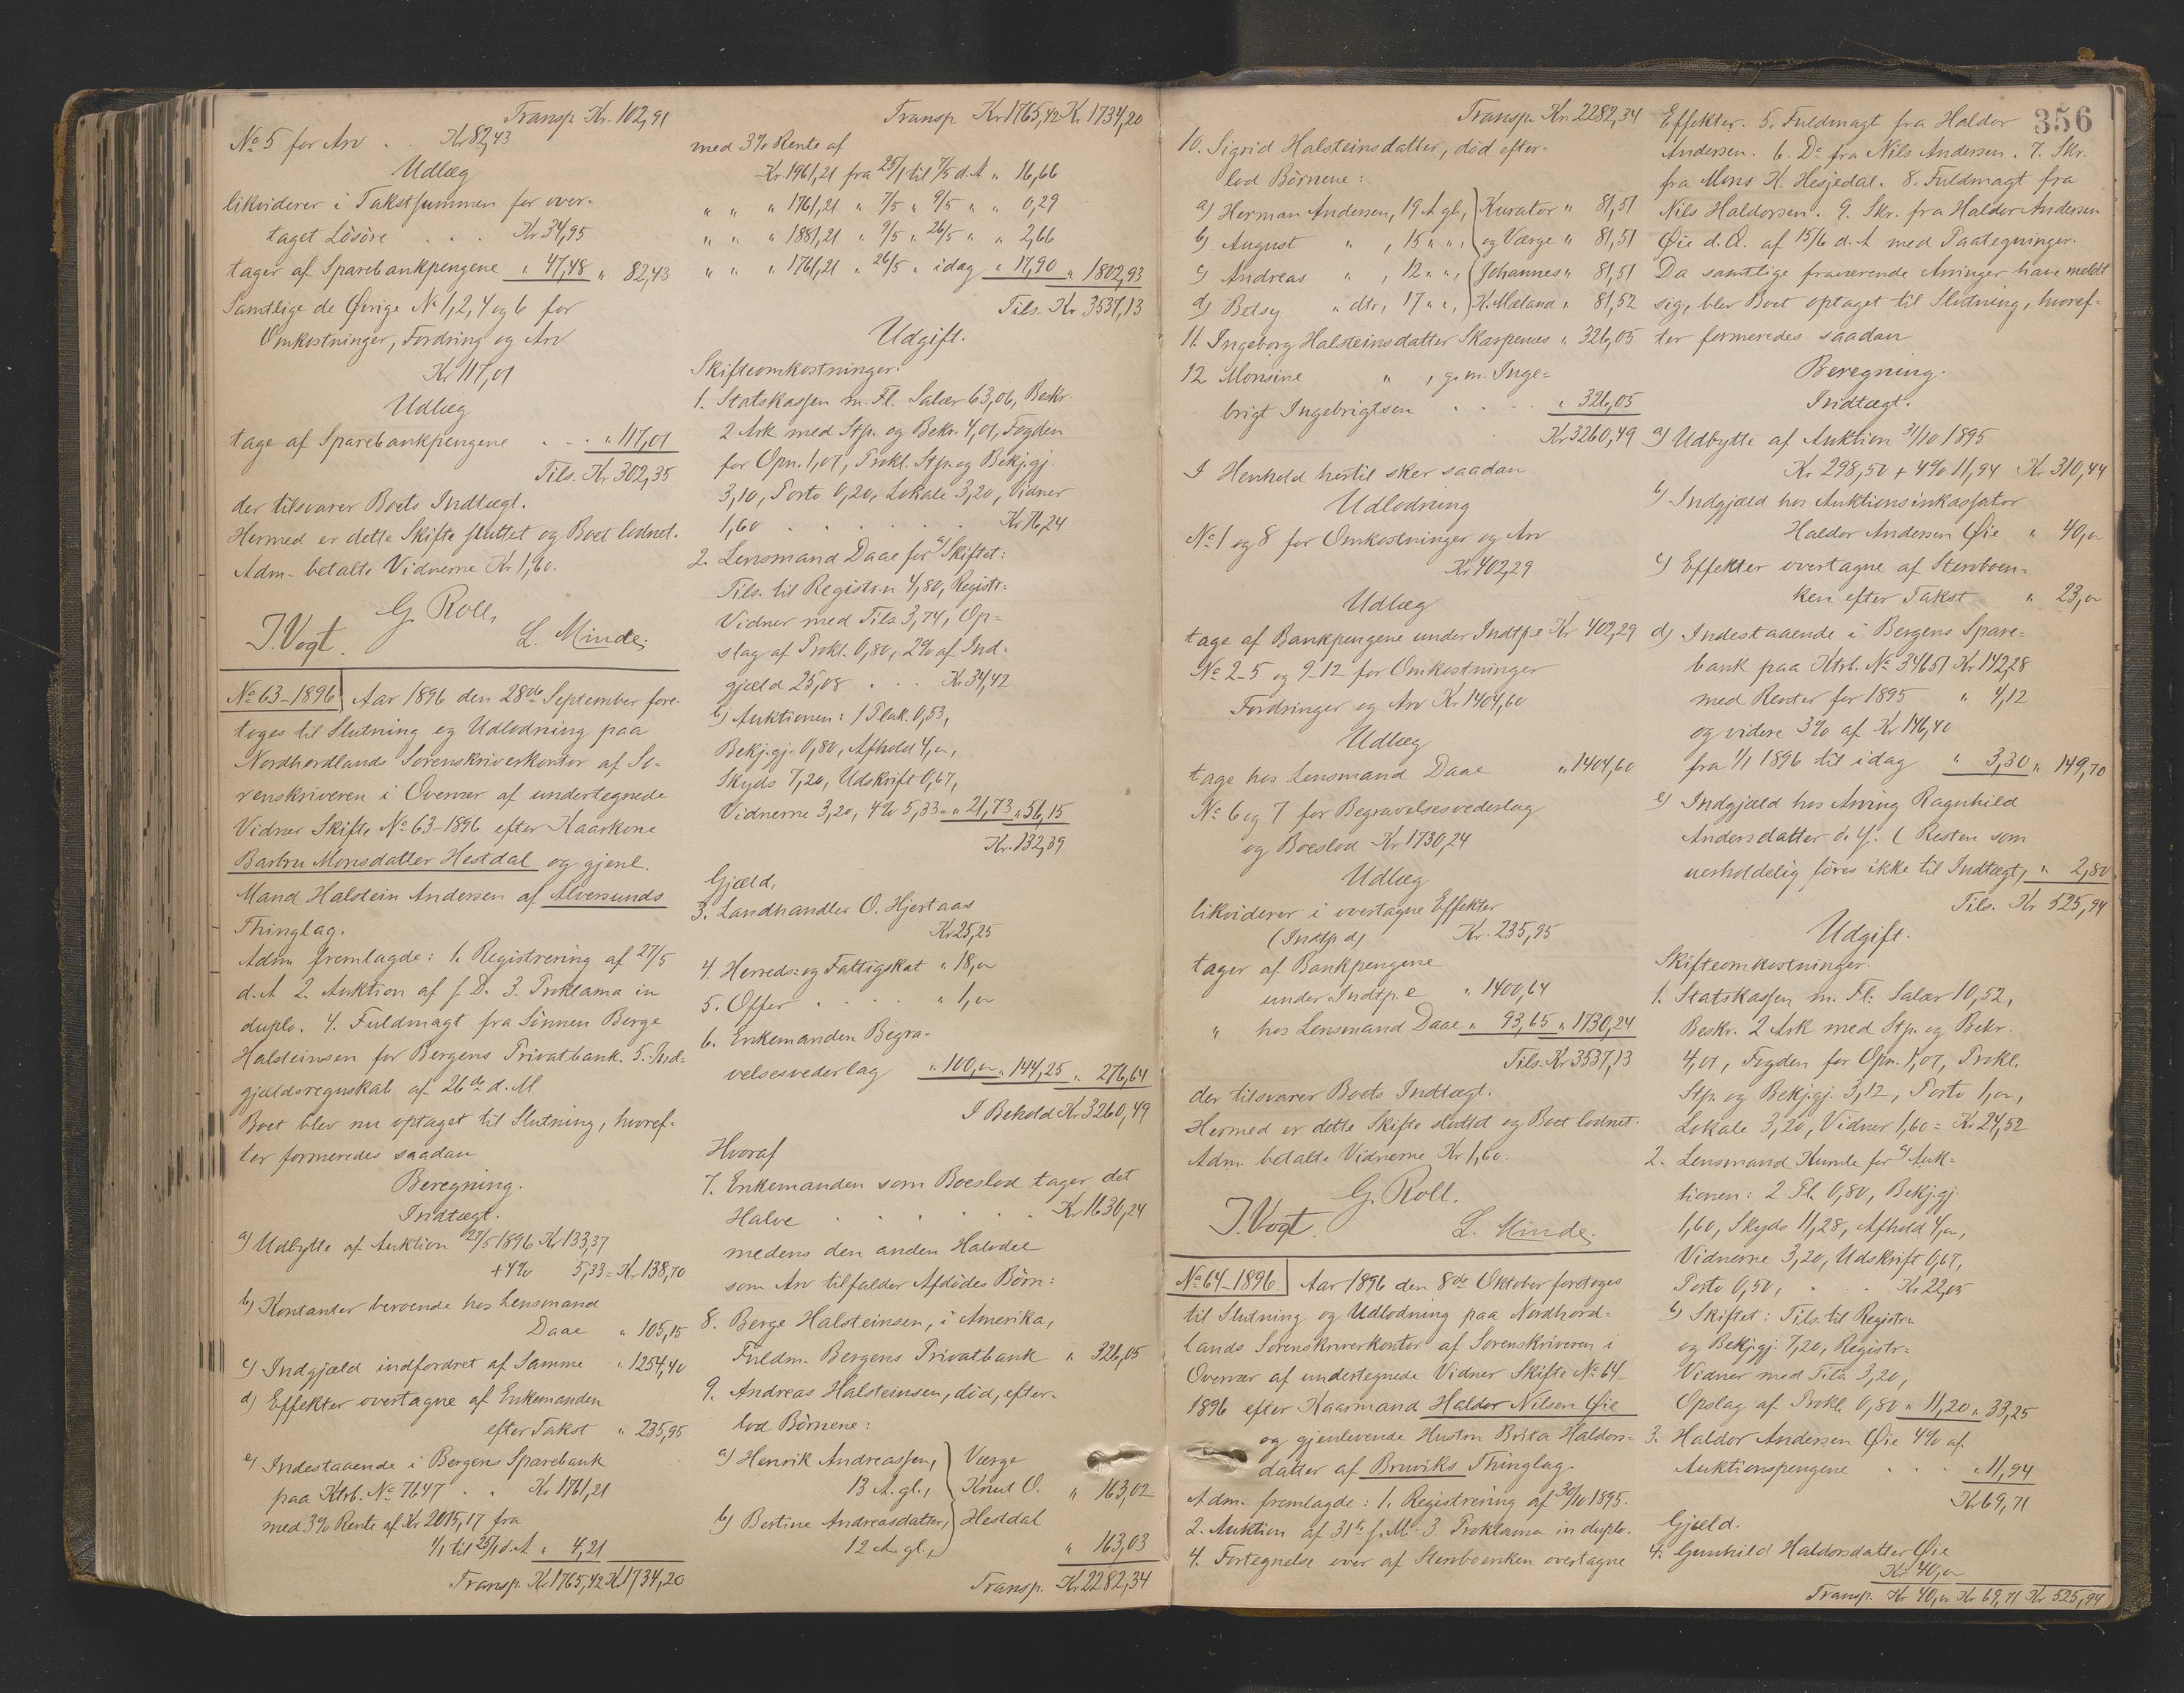 Transp. Kr. 102,91
No 5 for Arv . . Kr 82,43
Udlæg
likviderer i Takstsummen for over-
taget Lösöre . . . Kr 34,95
tager af Sparebankpengene " 47,48 " 82,43
Samtlige de Øvrige No 1, 2, 4 og 6 for
Omkostninger, Fordring og Arv
Kr 117,01
Udlæg
tage af Sparebankpengene . . . " 117,01
Tils. Kr 302,35
der tilsvarer Boets Indtægt.
Hermed er dette Skifte sluttet og Boet lodnet.
Adm. betalte Vidnerne Kr 1,60.
G. Roll,
J. Vogt. L. Minde,
No 63-1896 Aar 1896 den 28de September fore-
toges til Slutning og Udlodning paa
Nordhordlands Sorenskriverkontor af So-
renskriveren i Overvær af undertegnede
Vidner Skifte No 63-1896 efter Kaarkone
Barbru Monsdatter Hestdal og gjenl.
Mand Halstein Andersen af Alversunds
Thinglag.
Adm. fremlagde: 1. Registrering af 27/5
d. A 2. Auktion af s. D. 3. Proklama in
duplo. 4. Fuldmagt fra Sönnen Berge
Halsteinsen for Bergens Privatbank. 5. Ind-
gjældsregnskab af 26de d. M.
Boet blev nu optaget til Slutning, hvoref-
ter formeredes saadan
Beregning.
Indtægt.
a) Udbytte af Auktion 27/5 1896 Kr 133,37
+ 4% 5,33 = Kr 138,70
b) Kontanter beroende hos Lensmand
Daae " 105,15
c) Indgjæld indfordret af Samme " 1254,40
d) Effekter overtagne af Enkemanden
efter Takst " 235,95
e) Indestaaende i Bergens Sparebank
paa Ktrb. No 7647 . . Kr 1761,21
med 3% Rente af Kr 2015,17 fra
1/1 til 25/1 d. A " 4,21
Transp. Kr 1765,42 Kr 1734,20
Transp Kr 1765,42 Kr 1734,20
med 3% Rente af
Kr 1961,21 fra 25/1 til 7/5 d. A " 16,66
" " " 1761,21 " 7/5 " 9/5 " " 0,29
" " " 1881,21 " 9/5 " 26/5 " " 2,66
" " " 1761,21 " 26/5 " idag " 17,90 " 1802,93
Tils. Kr 3537,13
Udgift.
Skifteomkostninger:
1. Statskassen m. Fl. Salær 63,06, Beskr.
2 Ark med Stp. og Bekr. 4,01, Fogden
for Opn. 1,07, Prokl. Stp. og Bekj.gj.
3,10, Porto 0,20, Lokale 3,20, Vidner
1,60 . . . . . . Kr 76,24
2. Lensmand Daae for a) Skiftet:
Tils. til Registr.n 4,80, Registr.-
Vidner med Tils. 3,74, Op-
slag af Prokl. 0,80, 2% af Ind-
gjæld 25,08 . . . Kr 34,42
b) Auktionen: 1 Plak. 0,53,
Bekj.gj. 0,80, Afhold 4,00,
Skyds 7,20, Udskrift 0,67,
Vidnerne 3,20, 4% 5,33 = " 21,73 " 56,15
Kr. 132,39
Gjæld,
3. Landhandler O. Hjertaas
Kr 25,25
4. Herreds- og Fattigskat " 18,00
5. Offer . . . . " 1,00
6. Enkemanden Begra-
velsesvederlag " 100,00 " 144,25 " 276,64
I Behold Kr 3260,49
Hvoraf
7. Enkemanden som Boeslod tager det
Halve . . . . . . . Kr 1630,24
medens den anden Halvdel
som Arv tilfalder Afdödes Börn:
8. Berge Halsteinsen, i Amerika,
Fuldm. Bergens Privatbank " 326,05
9. Andreas Halsteinsen, död, efter-
lod Börnene:
a) Henrik Andreassen, Værge
13 A. gl., Knut O. " 163,02
b) Bertine Andreasdatter, Hestdal
12 A. gl., " 163,03
Transp. Kr 2282,34
Transp. Kr. 2282,34
10. Sigrid Halsteinsdatter, död efter-
lod Börnene:
a) Herman Andersen, 19 A gl., Kurator " 81,51
b) August " , 15 " ", og Værge " 81,51
c) Andreas " , 12 " ", Johannes " 81,51
d) Betsy " dtr, 17 " ", K. Mæland " 81,52
11. Ingeborg Halsteinsdatter Skarpenes " 326,05
12. Monsine " , g. m. Inge-
brigt Ingebrigtsen . . . . " 326,05
Kr 3260,49
I Henhold hertil sker saadan
Udlodning
No 1 og 8 for Omkostninger og Arv
Kr 402,29
Udlæg
tage af Bankpengene under Indtp. e Kr 402,29
No 2-5 og 9-12 for Omkostninger
Fordringer og Arv Kr 1404,60
Udlæg
tage hos Lensmand Daae " 1404,60
No 6 og 7 for Begravelsesvederlag
og Boeslod Kr 1730,24
Udlæg
likviderer i overtagne Effekter
(Indtp d) Kr. 235,95
tager af Bankpengene
under Indtp. e " 1400,64
" hos Lensmand Daae " 93,65 " 1730,24
Tils. Kr 3537,13
der tilsvarer Boets Indtægt.
Hermed er dette Skifte sluttet og Boet lodnet.
Adm. betalte Vidnerne Kr 1,60.
G. Roll.
J. Vogt. L. Minde,
No 64-1896. Aar 1896 den 8de Oktober foretoges
til Slutning og Udlodning paa Nordhord-
lands Sorenskriverkontor af Sorenskriveren i
Overvær af undertegnede Vidner Skifte No 64-
1896 efter Kaarmand Haldor Nilsen Øie
og gjenlevende Hustru Brita Haldors-
datter af Bruviks Thinglag.
Adm. fremlagde: 1. Registrering af 30/10 1895.
2. Auktion af 31te s. M. 3. Proklama in duplo.
4. Fortegnelse over af Stervboenken overtagne
356
Effekter. 5. Fuldmagt fra Haldor
Andersen. 6. Do fra Nils Andersen. 7. Skr.
fra Mons K. Hesjedal. 8. Fuldmagt fra
Nils Haldorsen. 9. Skr. fra Haldor Andersen
Øie d. Æ. af 15/6 d. A med Paategninger.
Da samtlige fraværende Arvinger have meldt
sig, blev Boet optaget til Slutning, hvoref-
ter formeredes saadan
Beregning.
Indtægt.
a) Udbytte af Auktion 31/10 1895
Kr 298,50 + 4% 11,94 Kr 310,44
b) Indgjæld hos Auktionsinkassator
Haldor Andersen Øie " 40,00
c) Effekter overtagne af Stervboen-
ken efter Takst " 23,00
d) Indestaaende i Bergens Spare-
bank paa Ktrb. No 34651 Kr 142,28
med Renter for 1895 " 4,12
og videre 3% af Kr 146,40
fra 1/1 1896 til idag " 3,30 " 149,70
e) Indgjæld hos Arving Ragnhild
Andersdatter d. y. (Resten som
uerholdelig föres ikke til Indtægt, " 2,80
Tils. Kr 525,94
Udgift.
Skifteomkostninger.
1. Statskassen m. Fl: Salær 10,52,
Beskr. 2 Ark med Stp. og Bekr.
4,01, Fogden for Opn. 1,07, Prokl.
Stp. og Bekj.gj. 3,12, Porto 1,00,
Lokale 3,20, Vidner 1,60 = Kr 24,52
2. Lensmand Kumle for a) Auk-
tionen: 2 Pl. 0,80, Bekj.gj.
1,60, Skyds 11,28, Afhold 4,00,
Vidnerne 3,20, Udskrift 0,67,
Porto 0,50, . . Kr 22,05
b) Skiftet: Tils. til Registr.n
og Bekj.gj. 7,20, Registr.-
Vidner med Tils. 3,20,
Opslag af Prokl. 0,80 " 11,20 " 33,25
3. Haldor Andersen Øie 4% af
Auktionspengene . . . " 11,94
Kr 69,71
Gjæld.
4. Gunhild Haldorsdatter Øie
Kr 40,00
Transp. Kr 40,00 Kr 69,71 Kr 525,94